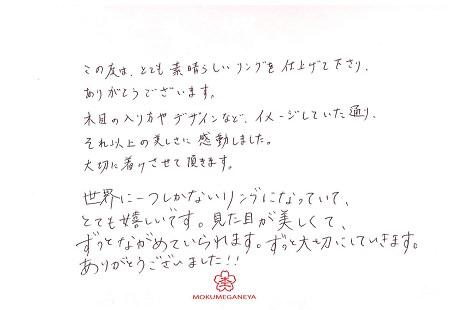 この度は、とても素晴らしいリングを仕上げて下さり、
ありがとうございます。
木目の入り方やデザインなど、イメージしていた通り、
それ以上の美しさに感動しました。
大切に着けさせて頂きます。
世界に一つしかないリングになっていて、
とても嬉しいです。見た目が美しくて、
ずっとながめていられます。ずっと大切にしていきます。
ありがとうございました!!
MOKUMEGANEYA